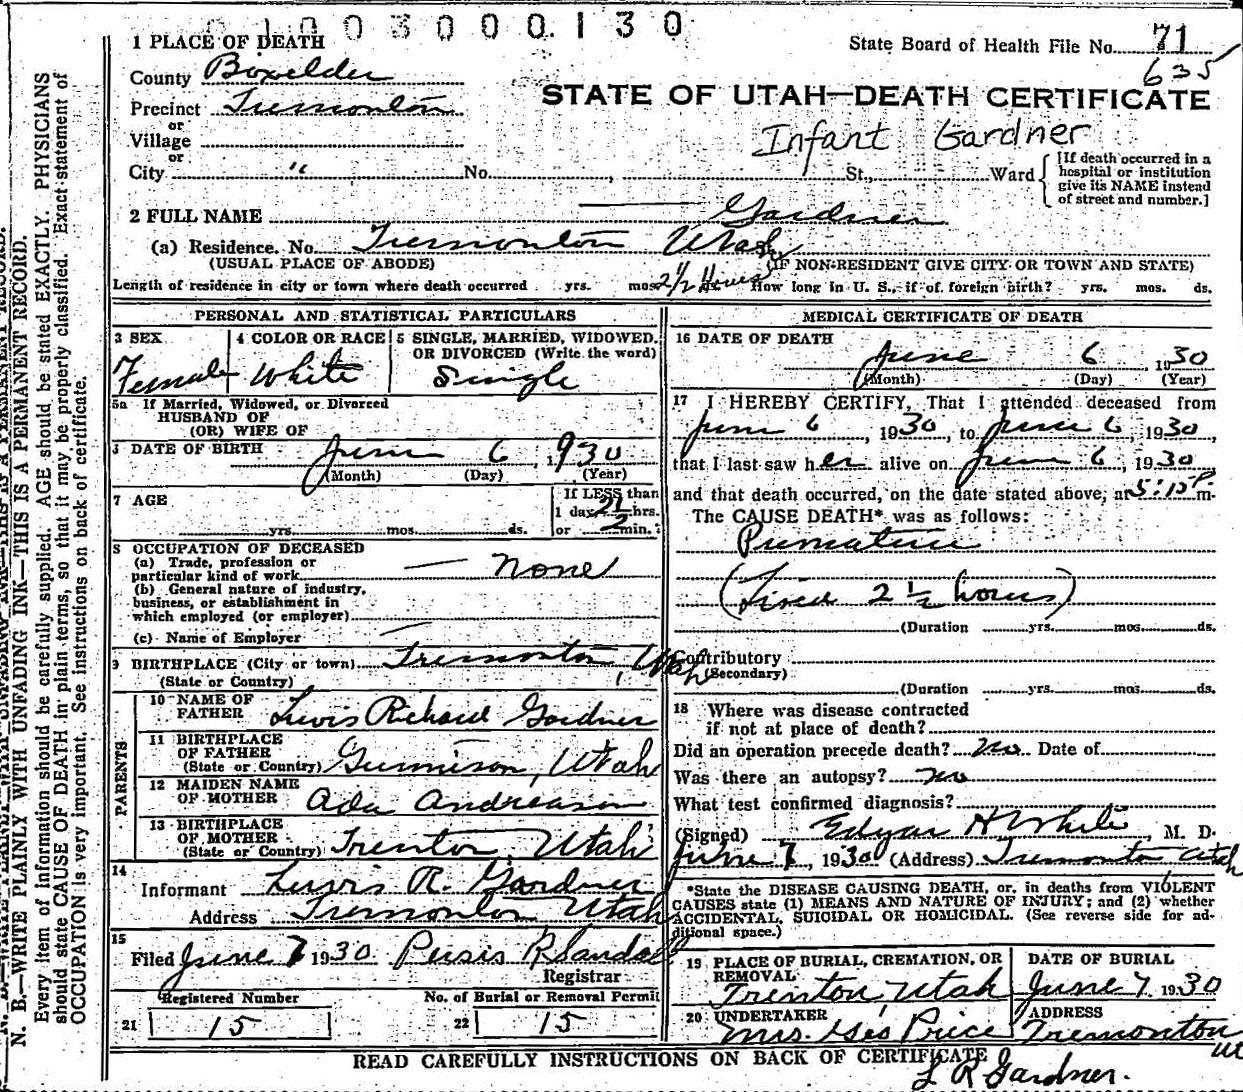 0 1 0 0 3 0 0 0 0. 1 3 0
1 PLACE OF DEATH
State Board of Health File No. 71
635
County Boxelder
Precinct Tremonton
or
Village
or
City " No. St., Ward
STATE OF UTAH—DEATH CERTIFICATE
Infant Gardner
[If death occurred in a
hospital or institution
give its NAME instead
of street and number.]
2 FULL NAME Gardner
(a) Residence. No. Tremonton Utah
(USUAL PLACE OF ABODE) (IF NON-RESIDENT GIVE CITY OR TOWN AND STATE)
Length of residence in city or town where death occurred yrs. mos. 2½ Hours How long in U. S., if of foreign birth? yrs. mos. ds.
PERSONAL AND STATISTICAL PARTICULARS
3 SEX
Female
4 COLOR OR RACE
White
5 SINGLE, MARRIED, WIDOWED,
OR DIVORCED (Write the word)
Single
5a If Married, Widowed, or Divorced
HUSBAND OF
(OR) WIFE OF
DATE OF BIRTH June 6 1930
(Month) (Day) (Year)
7 AGE
yrs. mos. ds.
If LESS than
1 day 2½ hrs.
or min.
8 OCCUPATION OF DECEASED
(a) Trade, profession or
particular kind of work — none
(b) General nature of industry,
business, or establishment in
which employed (or employer)
(c) Name of Employer
9 BIRTHPLACE (City or town) Tremonton, Utah
(State or Country)
PARENTS
10 NAME OF
FATHER Lewis Richard Gardner
11 BIRTHPLACE
OF FATHER
(State or Country) Gunnison, Utah
12 MAIDEN NAME
OF MOTHER Ada Andreason
13 BIRTHPLACE
OF MOTHER
(State or Country) Trenton, Utah
14
Informant Lewis R. Gardner
Address Tremonton Utah
15
Filed June 7 1930. Persis R Sandall
Registrar
Registered Number
21 15
No. of Burial or Removal Permit
22 15
MEDICAL CERTIFICATE OF DEATH
16 DATE OF DEATH
June 6 1930
(Month) (Day) (Year)
17 I HEREBY CERTIFY, That I attended deceased from
June 6, 1930, to June 6, 1930,
that I last saw her alive on June 6, 1930
and that death occurred, on the date stated above, at 5:15 P. m.
The CAUSE DEATH* was as follows:
Premature
(Lived 2½ hours)
(Duration yrs. mos. ds.
Contributory
(Secondary)
(Duration yrs. mos. ds.
18 Where was disease contracted
if not at place of death?
Did an operation precede death? no Date of
Was there an autopsy? no
What test confirmed diagnosis?
(Signed) Edgar H White, M. D.
June 7, 1930 (Address) Tremonton Utah
*State the DISEASE CAUSING DEATH, or, in deaths from VIOLENT
CAUSES state (1) MEANS AND NATURE OF INJURY; and (2) whether
ACCIDENTAL, SUICIDAL OR HOMICIDAL. (See reverse side for ad-
ditional space.)
19 PLACE OF BURIAL, CREMATION, OR
REMOVAL
Trenton, Utah
DATE OF BURIAL
June 7 1930
20 UNDERTAKER
Mrs. Geo Price
ADDRESS
Tremonton
ut
READ CAREFULLY INSTRUCTIONS ON BACK OF CERTIFICATE
L R Gardner.
N. B.—WRITE PLAINLY WITH UNFADING INK—THIS IS A PERMANENT RECORD.
Every item of information should be carefully supplied. AGE should be stated EXACTLY. PHYSICIANS
should state CAUSE OF DEATH in plain terms, so that it may be properly classified. Exact statement of
OCCUPATION is very important. See instructions on back of certificate.